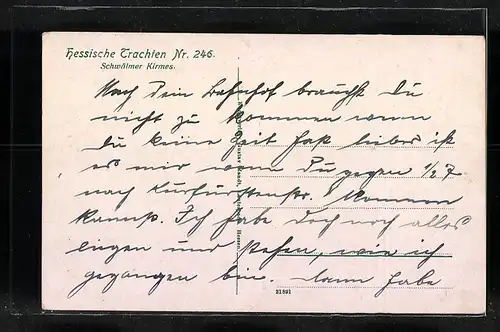 Hessische Trachten Nr. 246.
Schwälmer Kirmes.
Nach dem Bahnhof brauchst Du
nicht zu kommen wenn
du keine Zeit hast lieber ist
es mir wenn Du gegen 1/2 7
nach Kurfürstenstr. kommen
kannst. Ich habe doch noch alles
liegen und stehen, wie ich
gegangen bin. Dann habe
21891